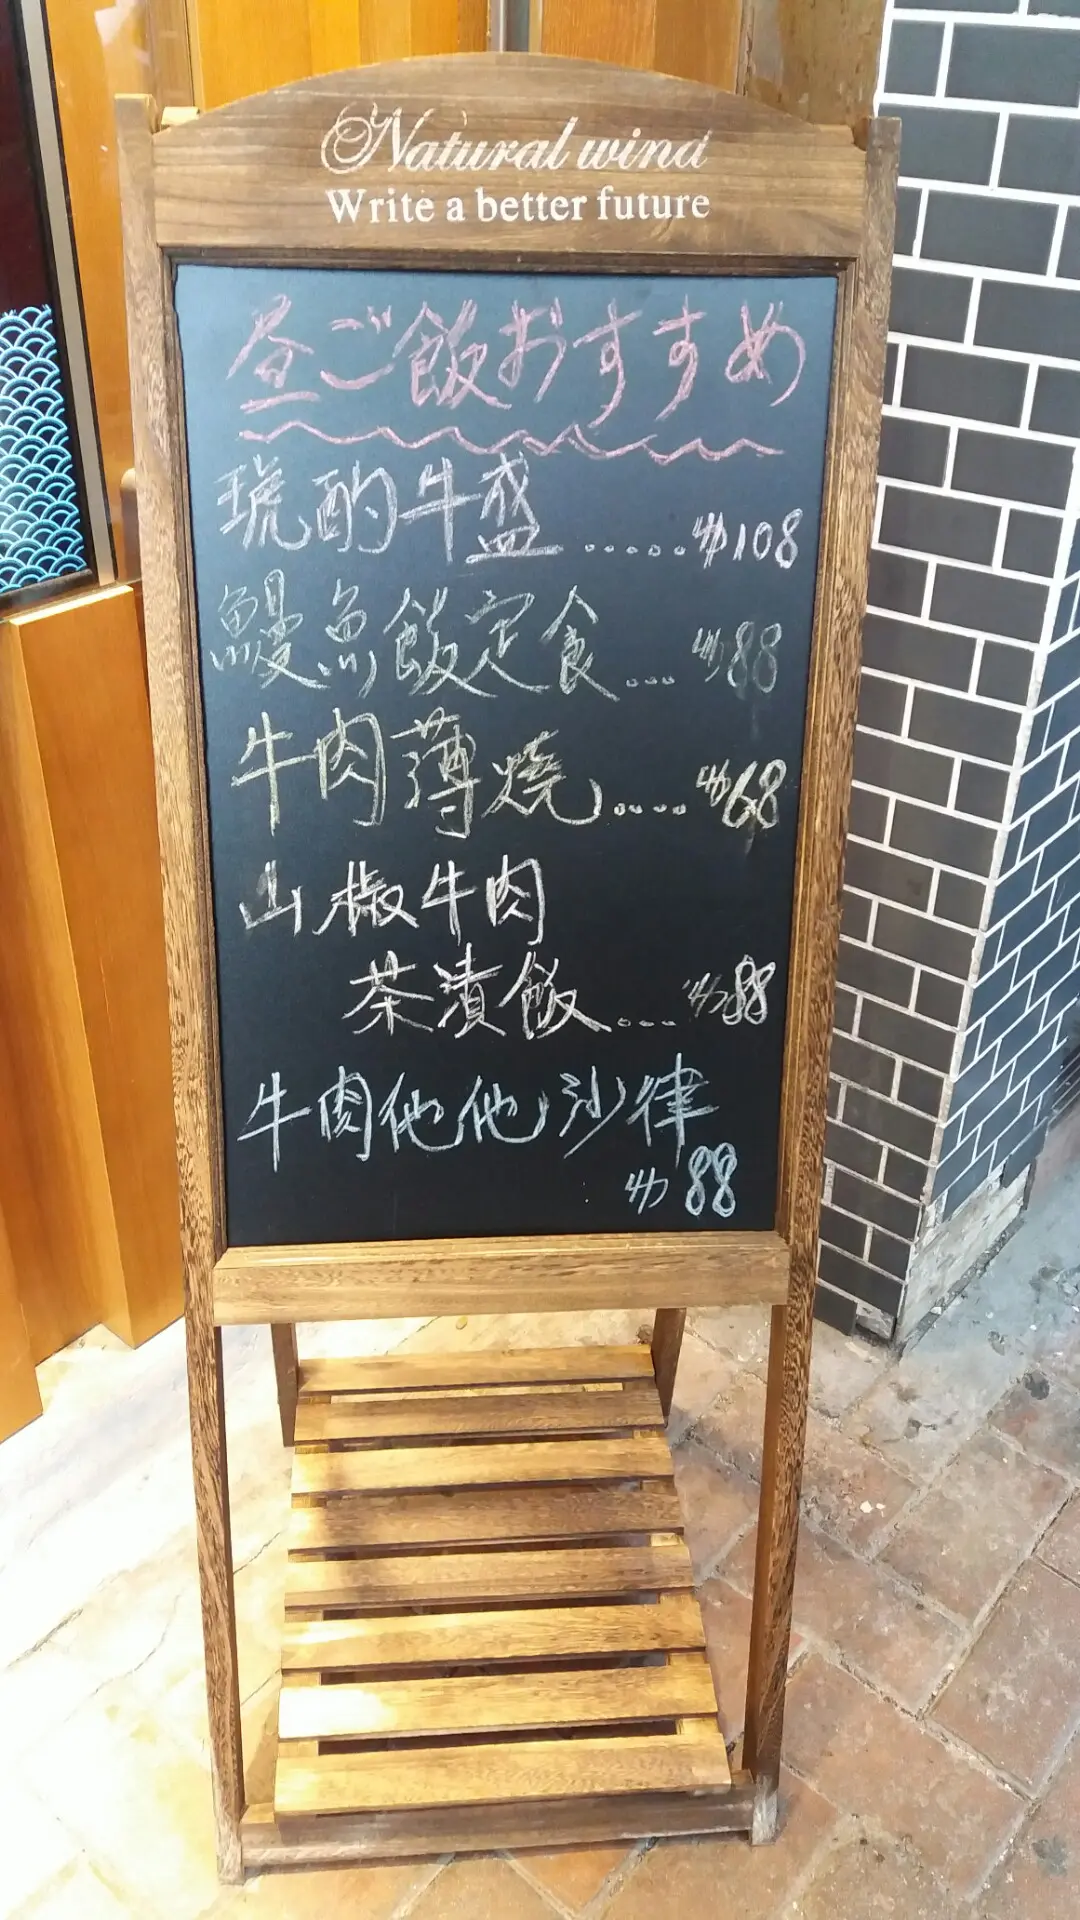 Natural wind
Write a better future
昼ご飯おすすめ
琥酌牛盛.....$108
鰻魚飯定食...$88
牛肉薄燒....$68
山椒牛肉
茶漬飯....$88
牛肉他他沙律
$88